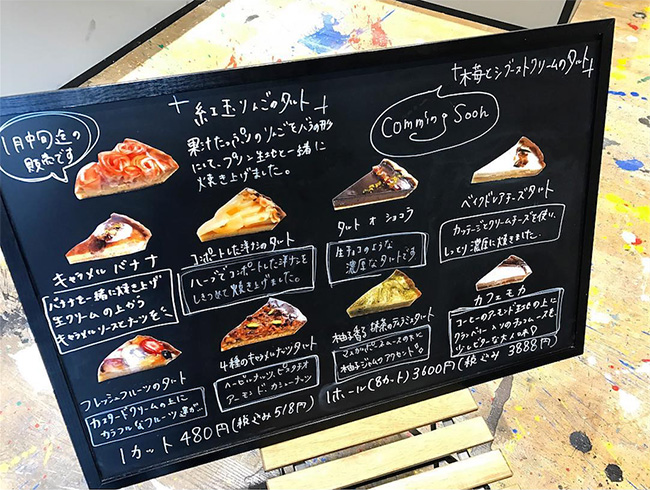 紅玉りんごのタルト
果汁たっぷりのりんごをバラの形
にして、プリン生地と一緒に
焼き上げました。
1月中旬迄の
販売です
木苺とシブーストクリームのタルト
Comming Soon
キャラメル バナナ
バナナを一緒に焼き上げ
生クリームの上から
キャラメルソースとナッツを
コンポートした洋なしのタルト
ハーブでコンポートした洋なしを
しきつめて焼き上げました。
タルト オ ショコラ
生チョコのような
濃厚なタルトです
ベイクドレアチーズタルト
カッテージとクリームチーズを使い、
しっとり濃厚に焼きました。
フレッシュフルーツのタルト
カスタードクリームの上に
カラフルなフルーツ達が…
4種のキャラメルナッツタルト
ヘーゼルナッツ、ピスタチオ
アーモンド カシューナッツ
柚子香る 抹茶のティラミスタルト
マスカルポーネムースの下に
柚子ジャムのアクセント♡
カフェモカ
コーヒーのアーモンド生地の上に
クランベリー入りのチョコムースを
少しビターな大人の味♡
1カット 480円(税込み518円)
1ホール(8カット) 3600円(税込み 3888円)